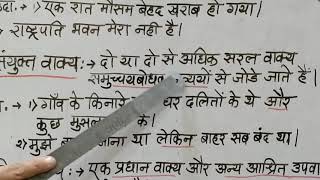 एक रात मौसम बेहद खराब हो गया।
राष्ट्रपति भवन मेरा नहीं है।
संयुक्त वाक्य:→ दो या दो से अधिक सरल वाक्य
समुच्चयबोधक से जोडे जाते हैं।
→ 1) गाँव के किनारे दलितों के थे और
कुछ के।
2) मुझे था लेकिन बाहर सब बंद था।
:→ एक प्रधान वाक्य और अन्य आश्रित